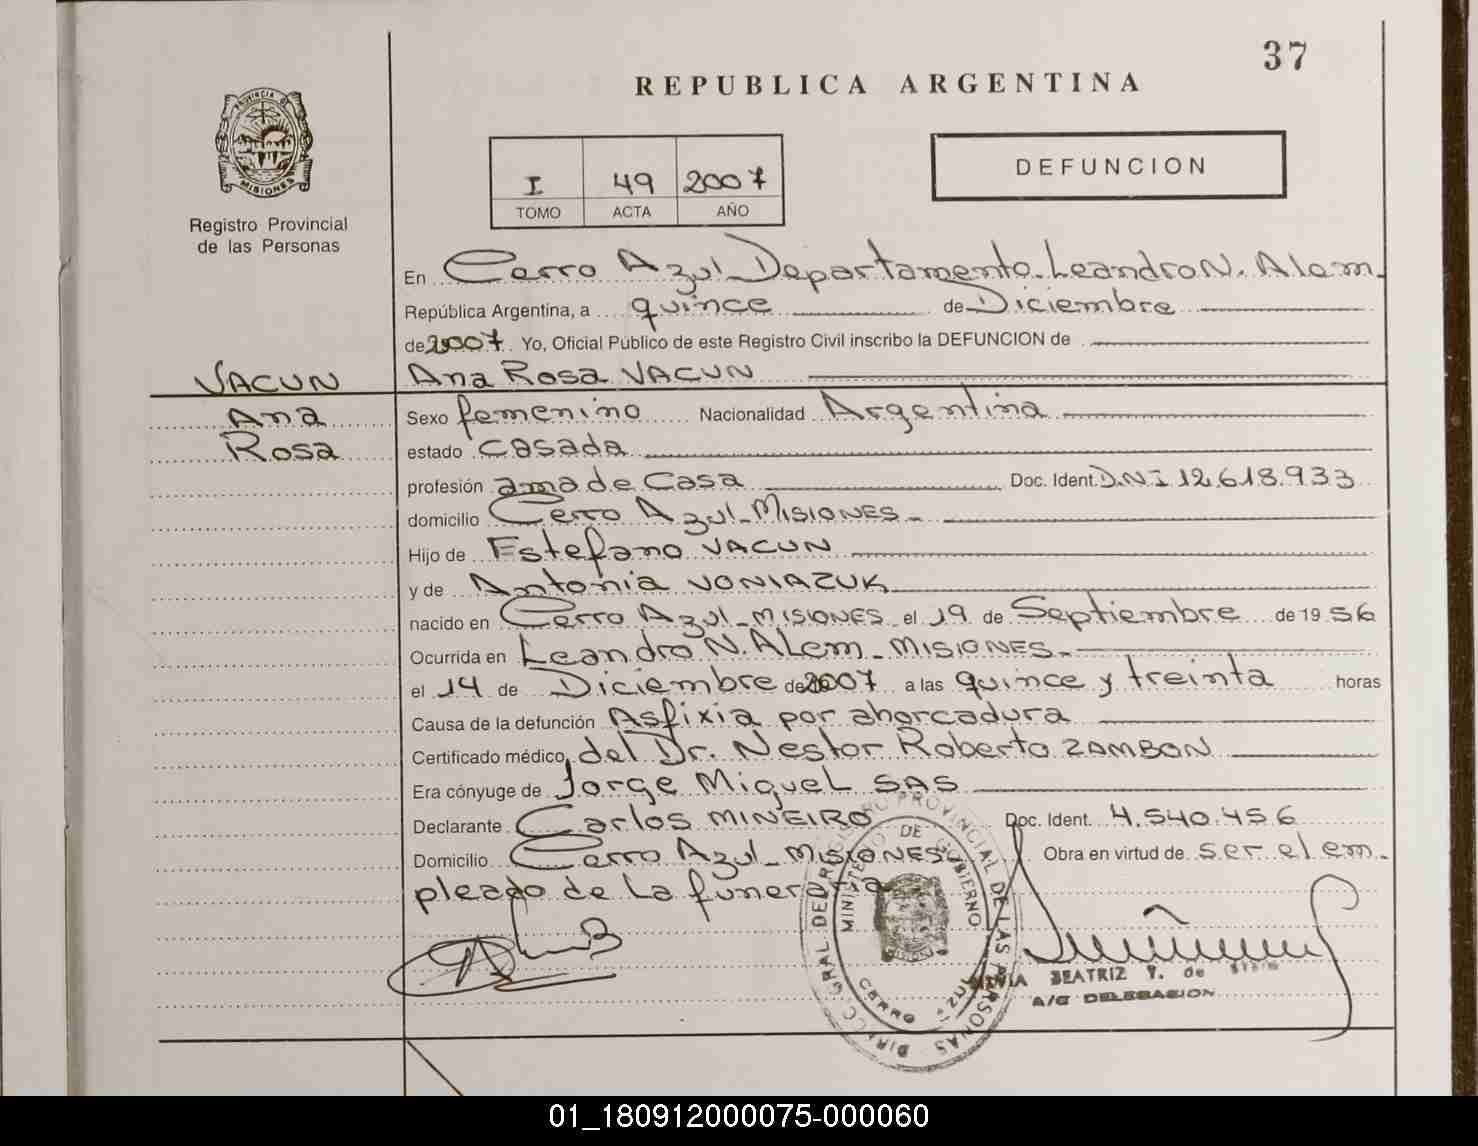 37
REPUBLICA ARGENTINA
PROVINCIA DE
MISIONES
Registro Provincial
de las Personas
I 49 2007
TOMO ACTA AÑO
DEFUNCION
En Cerro Azul Departamento Leandro N. Alem.
República Argentina, a quince de Diciembre
de 2007. Yo, Oficial Publico de este Registro Civil inscribo la DEFUNCION de
VACUN Ana Rosa VACUN
Ana Sexo femenino Nacionalidad Argentina
Rosa estado Casada
profesión ama de Casa Doc. Ident. D.N.I 12.618.933
domicilio Cerro Azul - MISIONES -
Hijo de Estefano VACUN
y de Antonia VONIAZUK
nacido en Cerro Azul - MISIONES el 19 de Septiembre de 1956
Ocurrida en Leandro N. ALem - MISIONES -
el 14 de Diciembre de 2007 a las quince y treinta horas
Causa de la defunción Asfixia por ahorcadura
Certificado médico, del Dr. Nestor Roberto ZAMBON
Era cónyuge de Jorge Miguel SAS
Declarante Carlos MINEIRO Doc. Ident. 4.540.456
Domicilio Cerro Azul - MISIONES Obra en virtud de ser el em-
pleado de La funeraria
DIRECC. GRAL DEL REGISTRO PROVINCIAL DE LAS PERSONAS
MINISTERIO DE GOBIERNO
CERRO AZUL
BEATRIZ Y. de
A/C DELEGACION
01_180912000075-000060